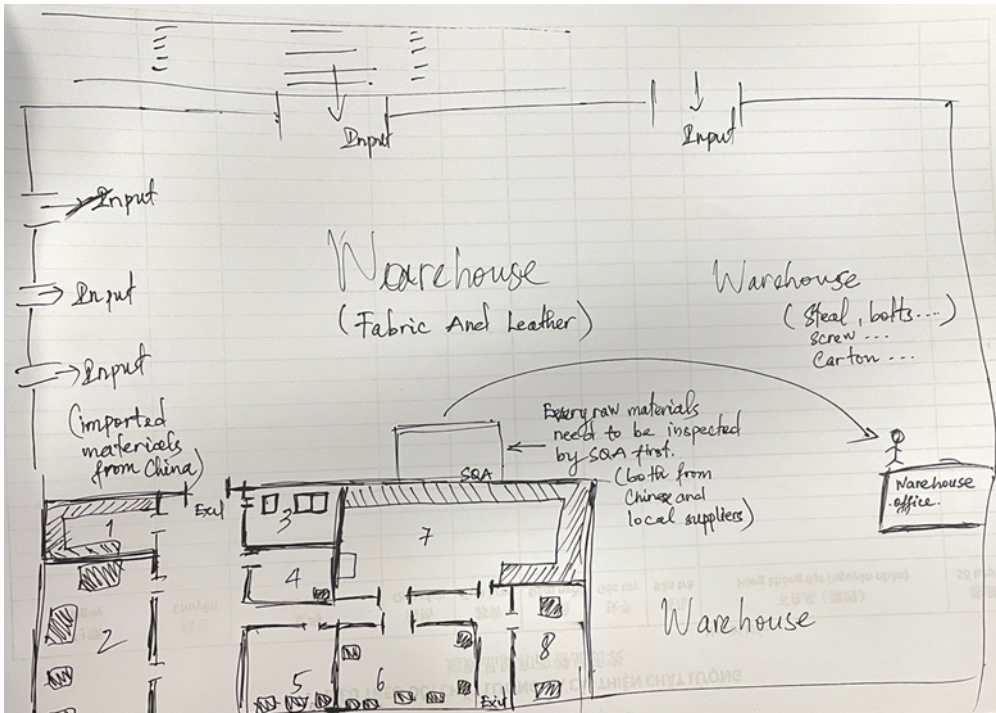 Input
Input
Input
Input
Input
(imported
materials
from China)
Warehouse
(Fabric And Leather)
Warehouse
(Steal, bolts....)
screw ...
Carton ...
Every raw materials
need to be inspected
by SQA first.
(both from
Chinese and
local suppliers)
SQA
Warehouse
office.
Exit
1
2
3
4
5
6
7
8
Exit
Warehouse